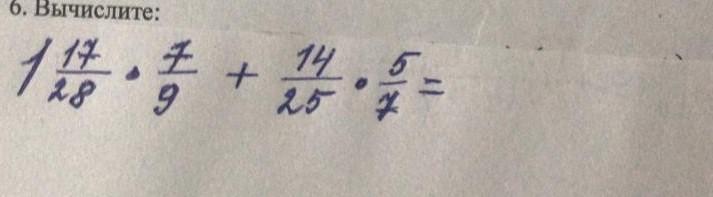 6. Вычислите:
1 17/28 · 7/9 + 14/25 · 5/7 =